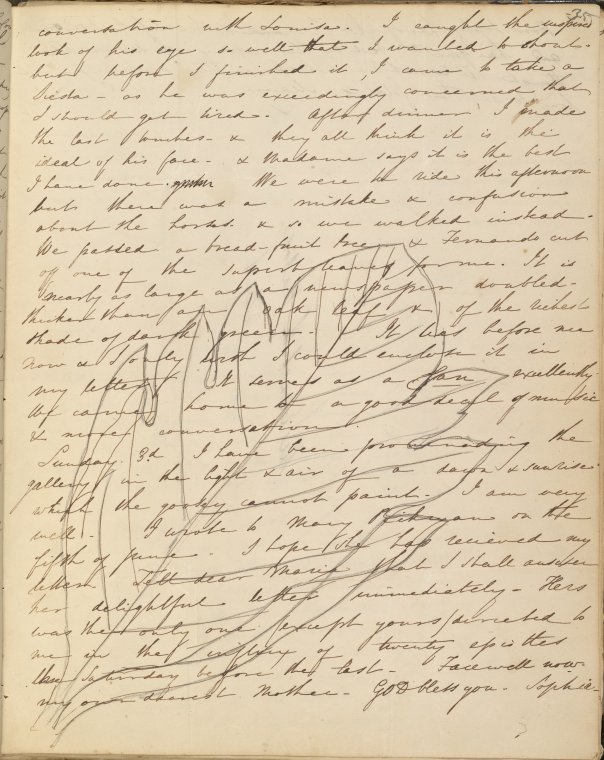 35
conversation with Louisa. I caught the inspired
look of his eye so well that I wanted to shout.
but before I finished it, I came to take a
Siesta - as he was exceedingly concerned that
I should get tired. After dinner I made
the last touches - & they all think it is the
ideal of his face - & Madame says it is the best
I have done. We were to ride this afternoon
but there was a mistake & confusion
about the horses & so we walked instead.
We passed a bread-fruit tree & Fernando cut
off one of the superb leaves for me. It is
nearly as large as a newspaper doubled -
thicker than an oak leaf & of the richest
shade of dark green. It lies before me
now & I only wish I could enclose it in
my letter. It serves as a fan excellently.
We came home to a good deal of music
& more conversation.
Sunday 3d I have been promenading the
gallery in the light & air of a dawn & sunrise
which the gods cannot paint. I am very
well. I wrote to Mary on the
fifth of June. I hope she has recieved my
letter. Tell dear Maria that I shall answer
her delightful letter immediately - Hers
was the only one (except yours) directed to
me in the of twenty epistles
Saturday before the last - Farewell now
my own dearest Mother - GOD bless you. Sophia -